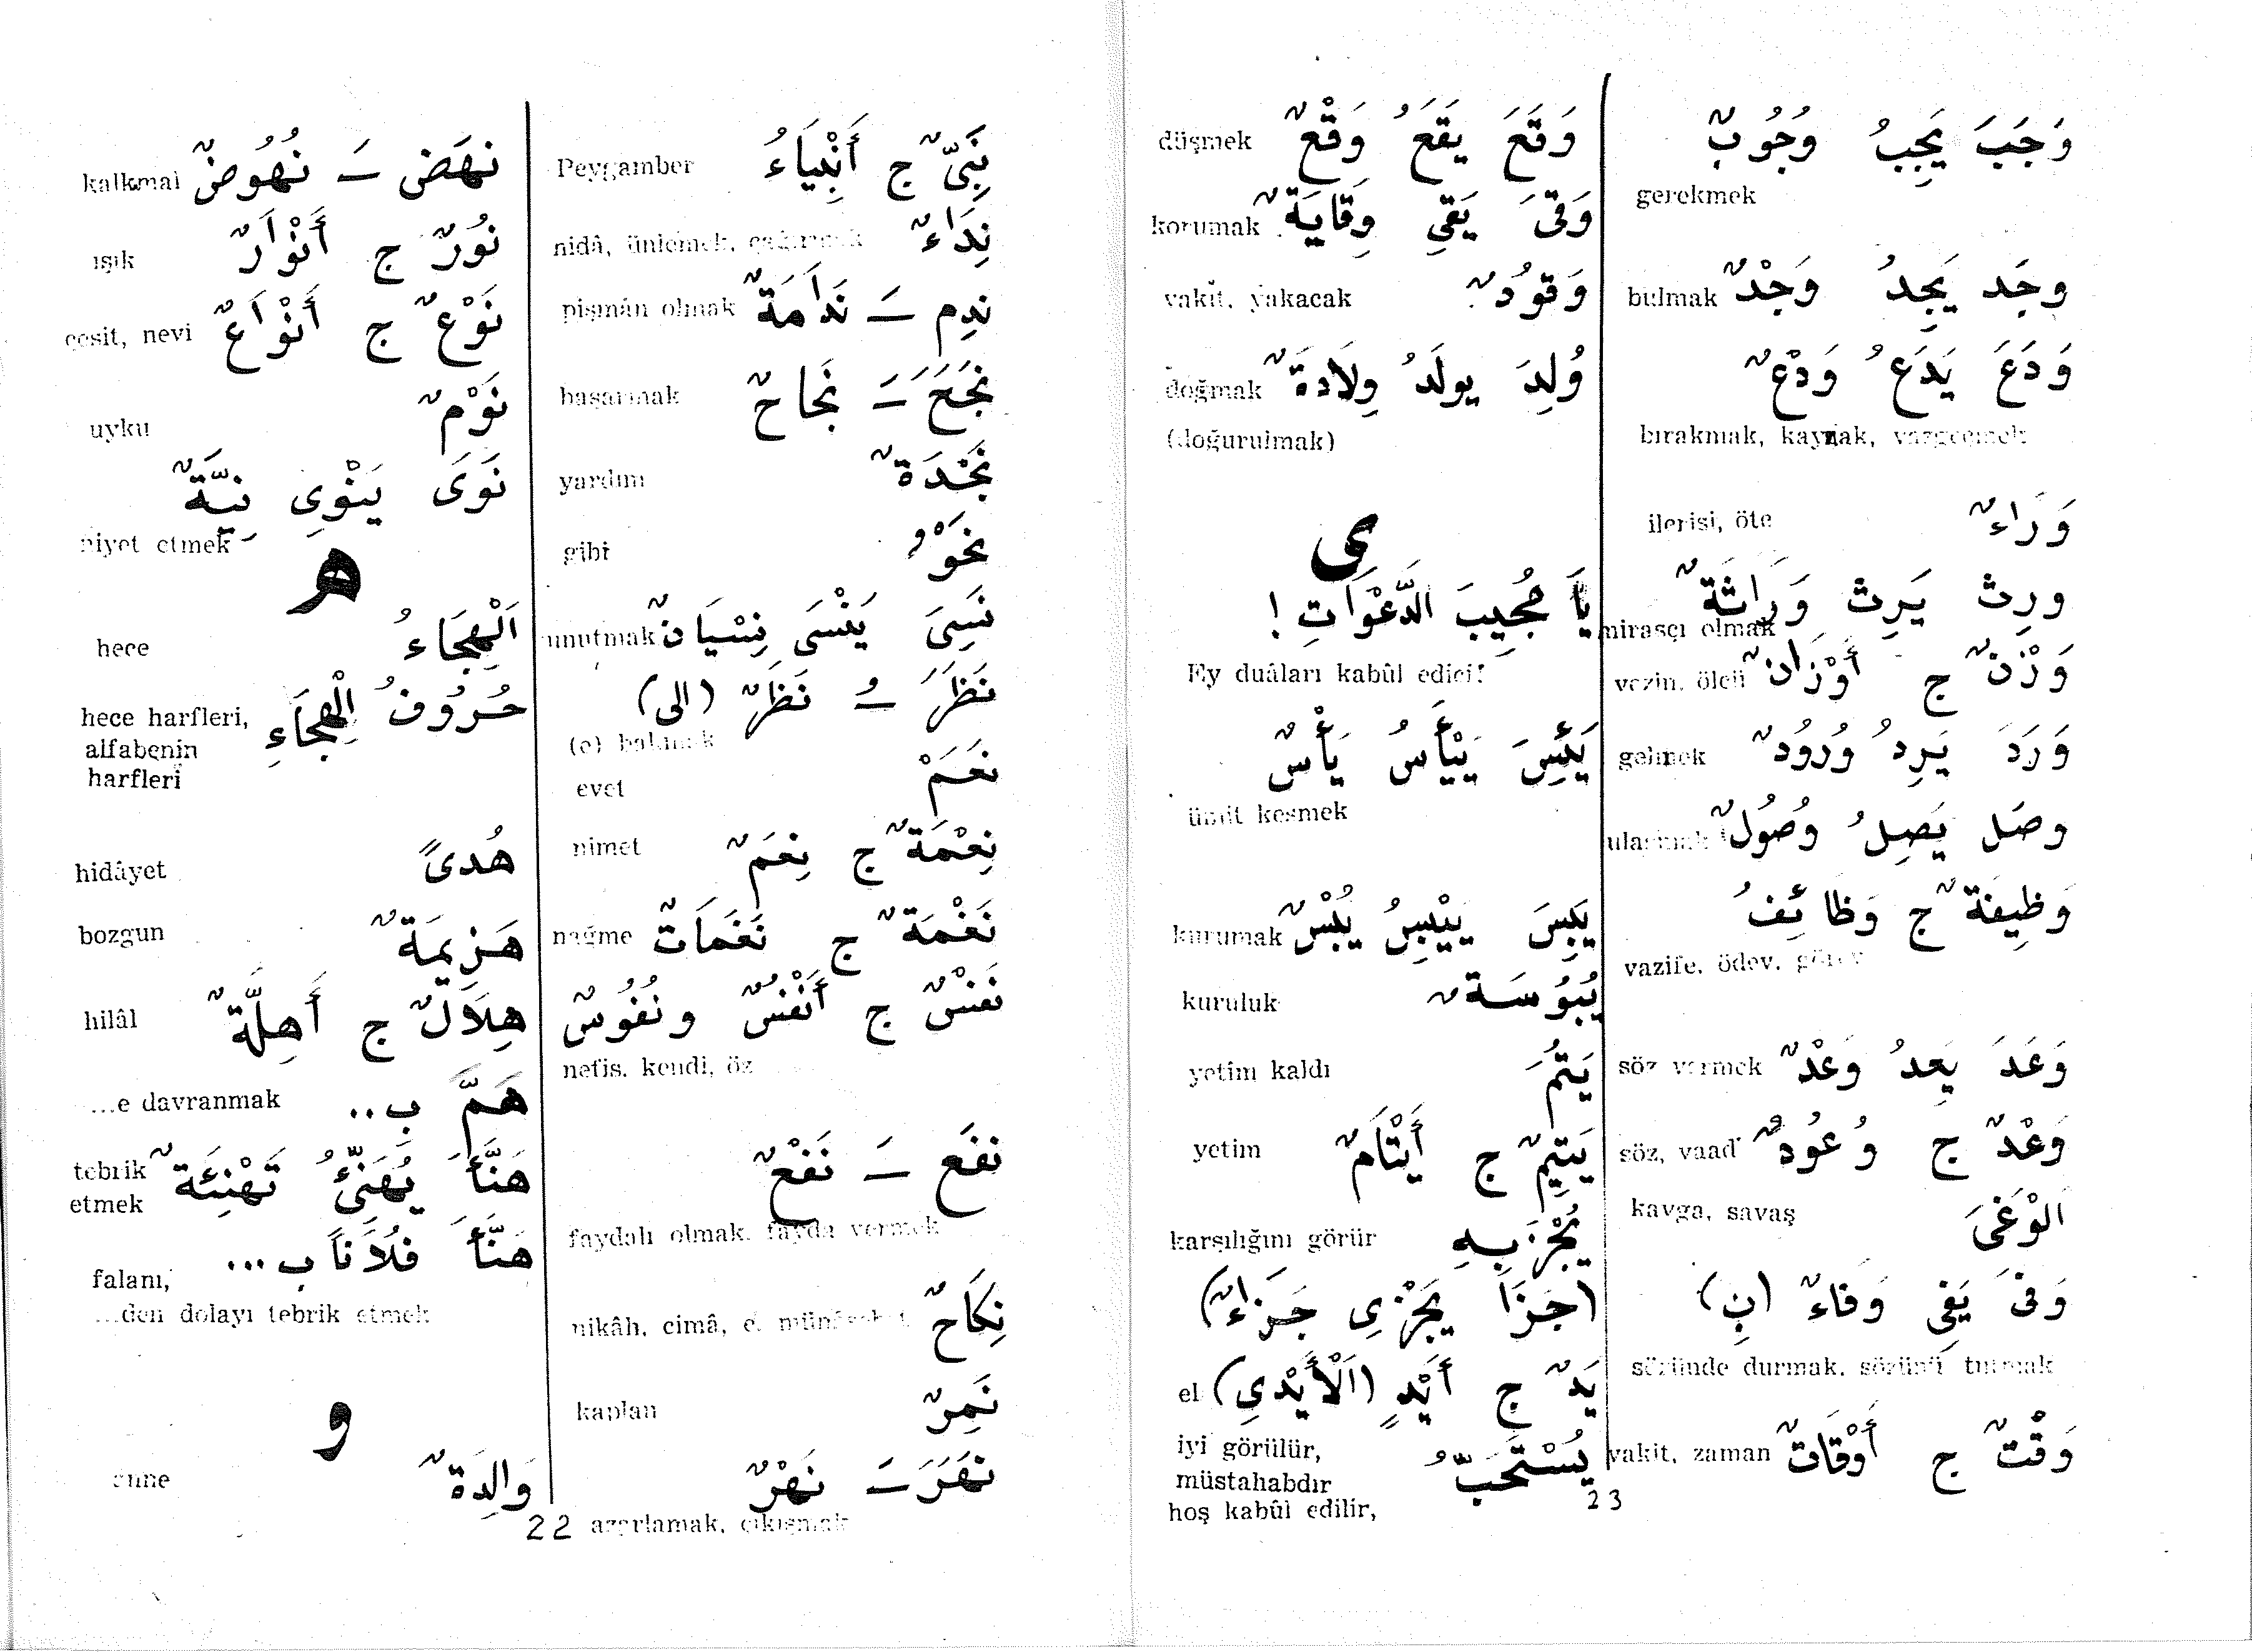 نَبِىٌّ ج أَنْبِيَاءُ Peygamber
نِدَاءٌ nidâ, ünlemek,
نَدِم ــَـ نَدَامَةٌ pişmân olmak
نَجَحَ ــَـ نَجَاحٌ başarmak
نَجْدَةٌ yardım
نَحْوُ gibi
نَسِىَ يَنْسَى نِسْيَانٌ unutmak
نَظَرَ ــُـ نَظَرٌ (الى)
(e) bakmak
نَعَمْ evet
نِعْمَةٌ ج نِعَمٌ nimet
نَغْمَةٌ ج نَغَمَاتٌ nağme
نَفْسٌ ج أَنْفُسٌ و نُفُوسٌ
nefis, kendi, öz
نفَع ــَـ نَفْعٌ
faydalı olmak, fayda vermek
نِكَاحٌ nikâh, cimâ,
نَمِرٌ kaplan
نَهَرَ ــَـ نَهْرٌ
azarlamak, çıkışmak
نهَض ــَـ نُهُوضٌ kalkmal
نُورٌ ج أَنْوَارٌ ışık
نَوْعٌ ج أَنْوَاعٌ çeşit, nevi
نَوْمٌ uyku
نَوَى يَنْوِى نِيَّةٌ
niyet etmek
ه
اَلْهِجَاءُ hece
حُرُوفُ الْهِجَاءِ hece harfleri,
alfabenin
harfleri
هُدىً hidâyet
هَزِيمَةٌ bozgun
هِلَالٌ ج أَهِلَّةٌ hilâl
هَمَّ ب.. ...e davranmak
هَنَّأَ يُهَنِّئُ تَهْنِئَةٌ tebrik
etmek
هَنَّأَ فُلَاَناً ب...
falanı,
...den dolayı tebrik etmek
و
وَالِدَةٌ anne
22
وَجَبَ يَجِبُ وُجُوبٌ
gerekmek
وجَد يَجِدُ وَجْدٌ bulmak
وَدَعَ يَدَعُ وَدْعٌ
bırakmak, kaymak, vazgeçmek
وَرَاءٌ ilerisi, öte
ورِث يَرِث وَرَاثَةٌ mirasçı olmak
وَزْنٌ ج أَوْزَانٌ vezin, ölçü
وَرَدَ يَرِدُ وُرُودٌ gelmek
وصَل يَصِلُ وُصُولٌ ulaşmak
وَظِيفَةٌ ج وَظَائِفُ
vazife, ödev, görev
وَعَدَ يَعِدُ وَعْدٌ söz vermek
وَعْدٌ ج وُعُودٌ söz, vaad
الوَغَىَ kavga, savaş
وَفىَ يَفِى وَفَاءٌ (بِ)
sözünde durmak, sözünü tutmak
وَقْتٌ ج أَوْقَاتٌ vakit, zaman
وَقَعَ يَقَعُ وَقْعٌ düşmek
وَقىَ يَقِي وِقَايَةٌ korumak
وَقُودٌ vakit, yakacak
وُلِدَ يولَدُ وِلَادةٌ doğmak
(doğurulmak)
ى
يَا مُجِيبَ الدَّعْوَاتِ !
Ey duâları kabûl edici!
يَئِسَ يَيْأَسُ يَأْسٌ
ümit kesmek
يَبِسَ يَيْبِسُ يُبْسٌ kurumak
يُبُوسَةٌ kuruluk
يَتُمَ yetim kaldı
يَتِيمٌ ج أَيْتَامٌ yetim
يُجْزَ بِهِ karşılığını görür
(جَزَا يَجْزِى جَزَاءٌ)
يَدٌ ج أَيْدٍ (اَلْأَيْدِي) el
يُسْتَحَبُّ iyi görülür,
müstahabdır
hoş kabûl edilir,
23